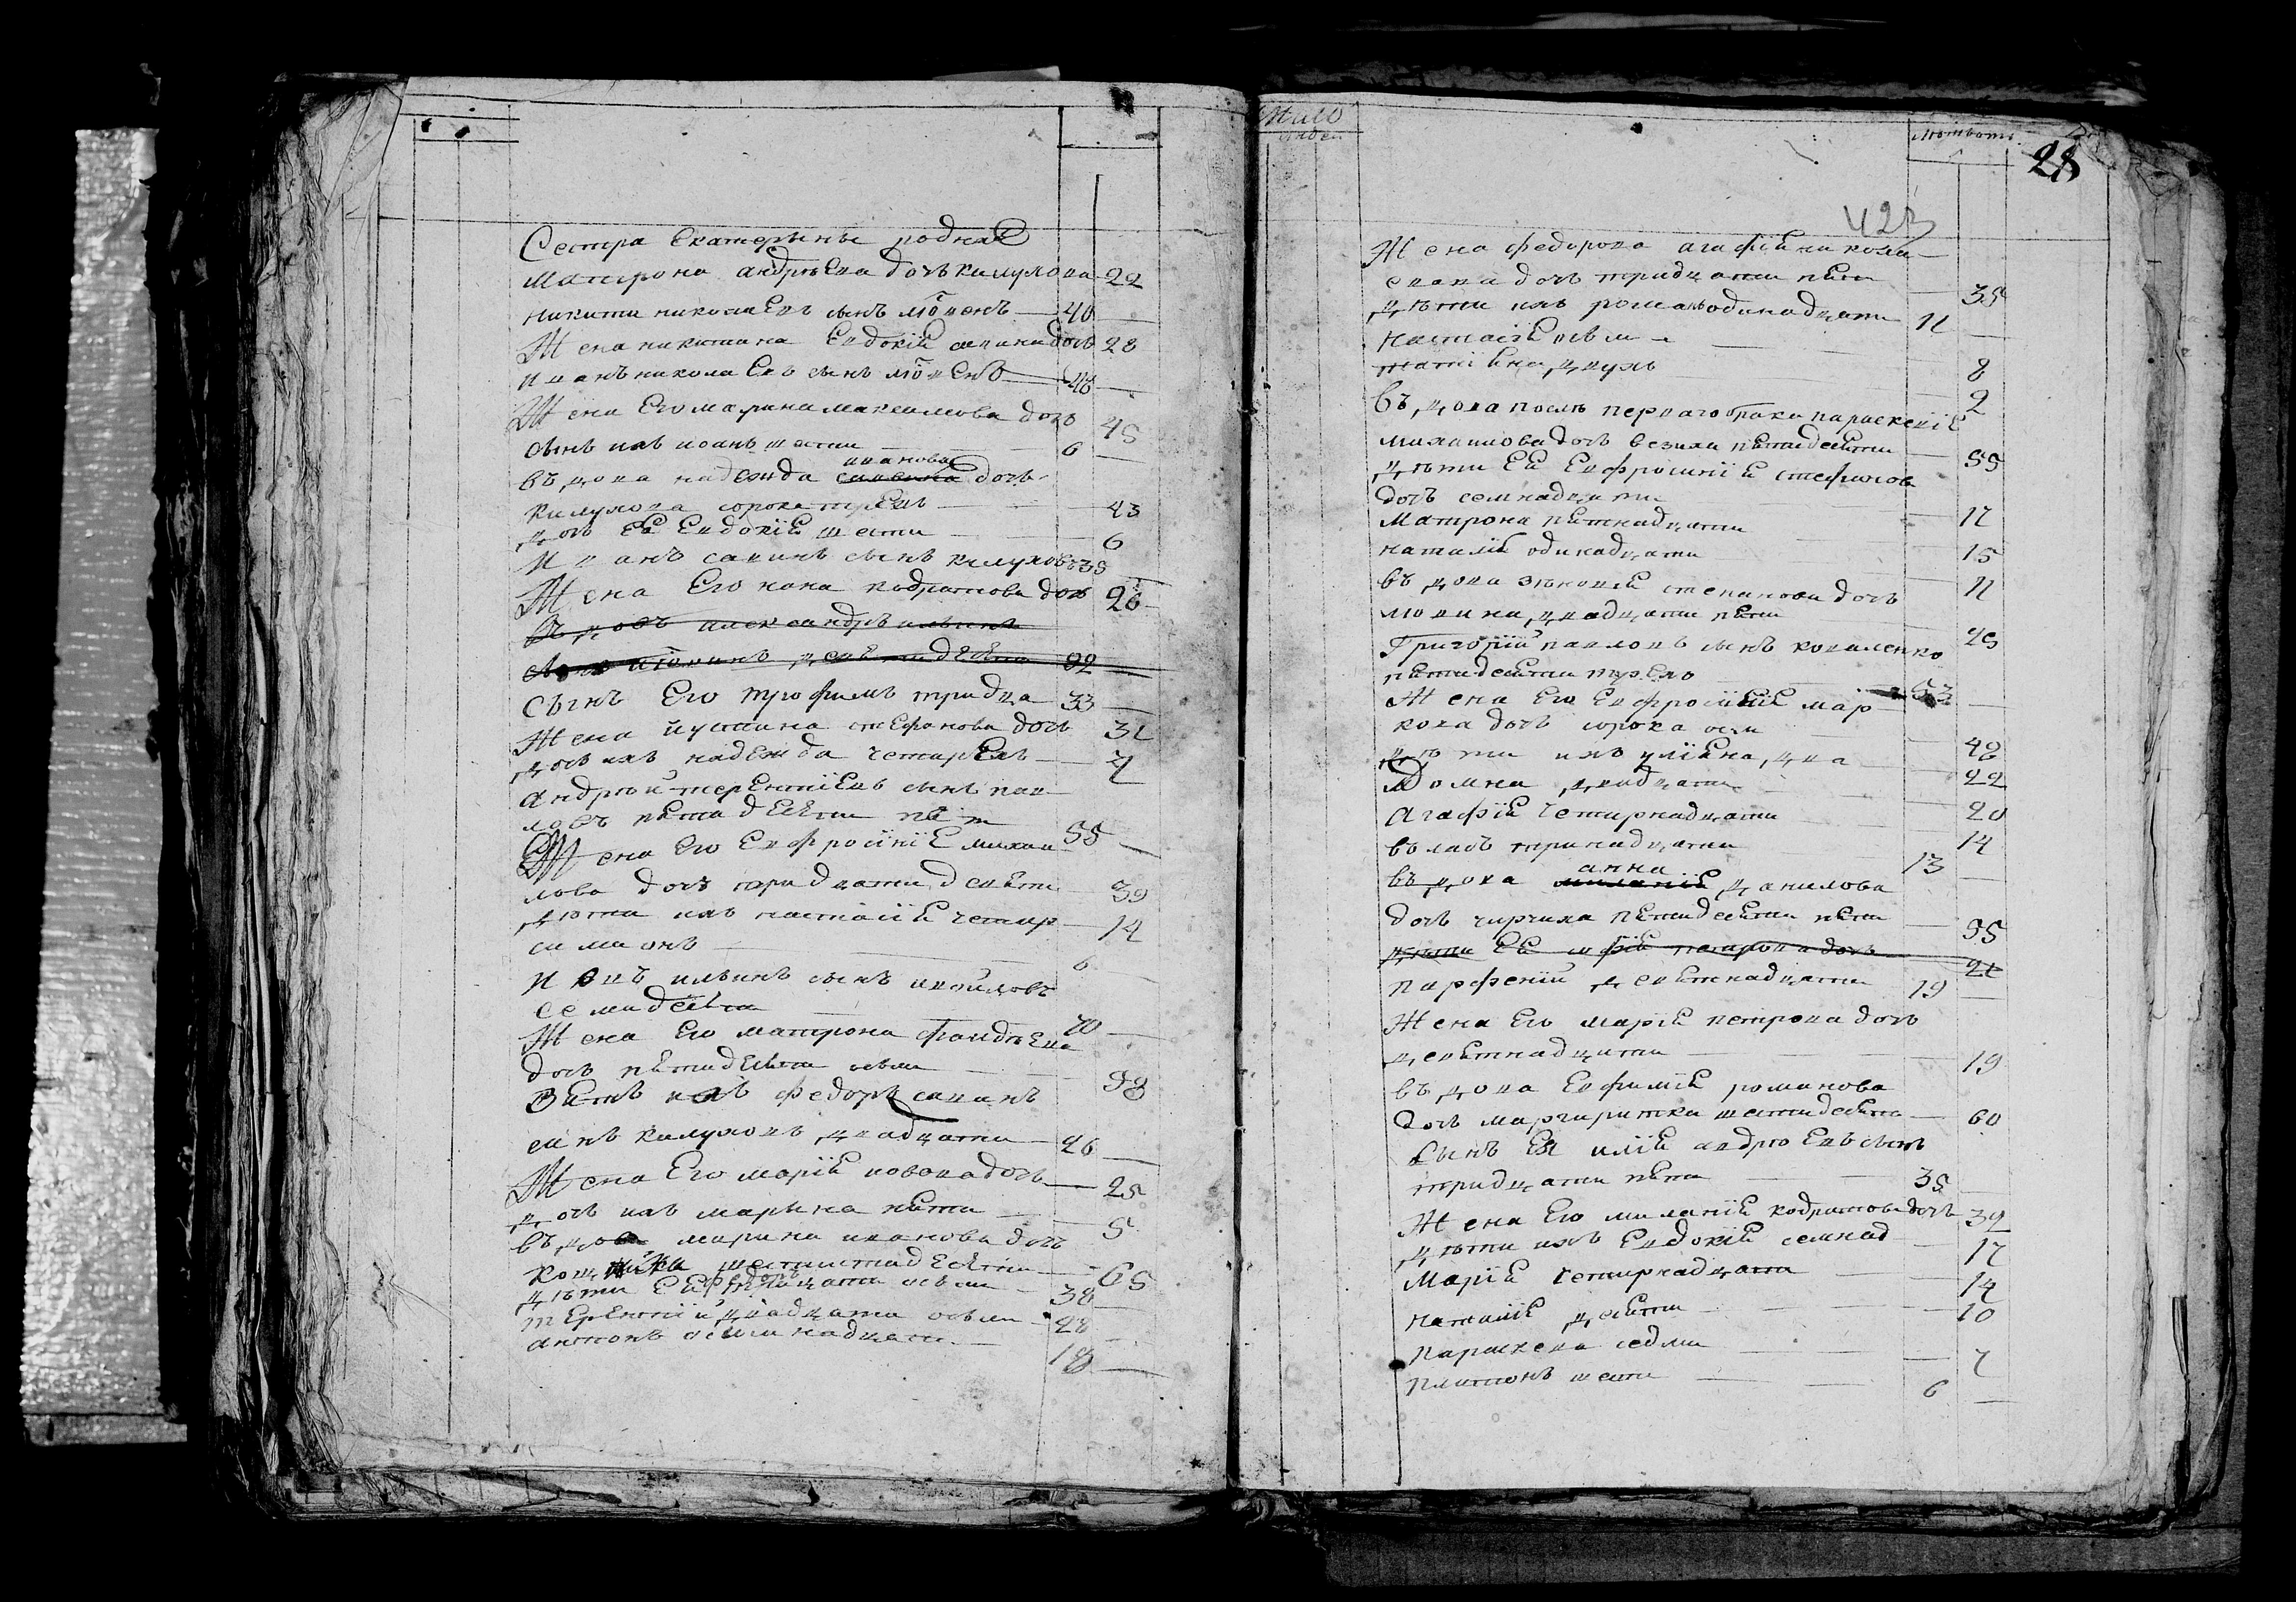 Сестра Екатерины родная
Матрона андрѣева дочь килухова 22
никита николаевъ сынъ 40
Жена никитина Евдокія савина дочь 28
иванъ николаевъ сынъ 48
Жена Его марина максимова дочь 45
сынъ ихъ иоанъ шести 6
ивановa
въдова надежда дочь
килухова сорока трехъ 43
дочь Ея Евдокія шести 6
Иванъ савинъ сынъ килуховъ 35
Жена Его кодратова дочь 26
въдовъ александръ ильинъ
92
Сынъ Его трофимъ тридца 33
Жена иустина стефанова дочь 31
дочь ихъ надежда четырехъ 4
андрѣй терентіевъ сынъ пав
ловъ пятадесяти пят 55
Жена Его Евфросинія михаи
лова дочь тридцати девяти 39
дѣти ихъ настасія четыр 14
симионъ 6
ильинъ сынъ
семидесяти 70
Жена Его матрона фаидѣева
дочь пятидесяти осьми 58
Зять ихъ федоръ савинъ
синъ килуховъ двадцати 26
Жена Его марія дочь 25
дочь ихъ марина пяти 5
въдова марина иванова дочь
шестистадесяти 65
федоръ
дѣти Ея тридцати осьми 38
терентій двадцати осьми 28
антонъ осьминадцати 18
Мало
28
423
Жена федорова агафія никола
евака дочь тридцати пяти 35
дѣти ихъ романъ одинадцати 11
настасія осьми 8
татіяна двухъ 2
въдова послѣ перваго брака параскевія
михаилова дочь пятидесяти 55
дѣти Ея Евфросинія стефанов
дочь семнадцати 17
Матрона пятнадцати 15
наталія одинадцати 11
въдова зѣновія степанова дочь
двадцати пяти 25
Григорій павловъ сынъ коваленко
пятидесяти трехъ 53
Жена Его Евфросинія мар
кова дочь сорока осм 48
дѣти ихъ уліяна два 22
Домна двадцати 20
агафія четырнадцати 14
въласъ тринадцати 13
анна
въдова миланія данилова
дочь пятидесяти пяти 55
дѣти Ея софія петрова дочь 21
парфеній девятнадцати 19
Жена Его марія петрова дочь
девятнадцати 19
въдова Евфимія романова
дочь маргаритка шестидесяти 60
Сынъ Ея илія андреевъ сынъ
тридцати пяти 35
Жена Его миланія кодратова дочь 32
дѣти ихъ Евдокія семнад 17
Марія четырнадцати 14
наталія десяти 10
параскева седми 7
платонъ шести 6